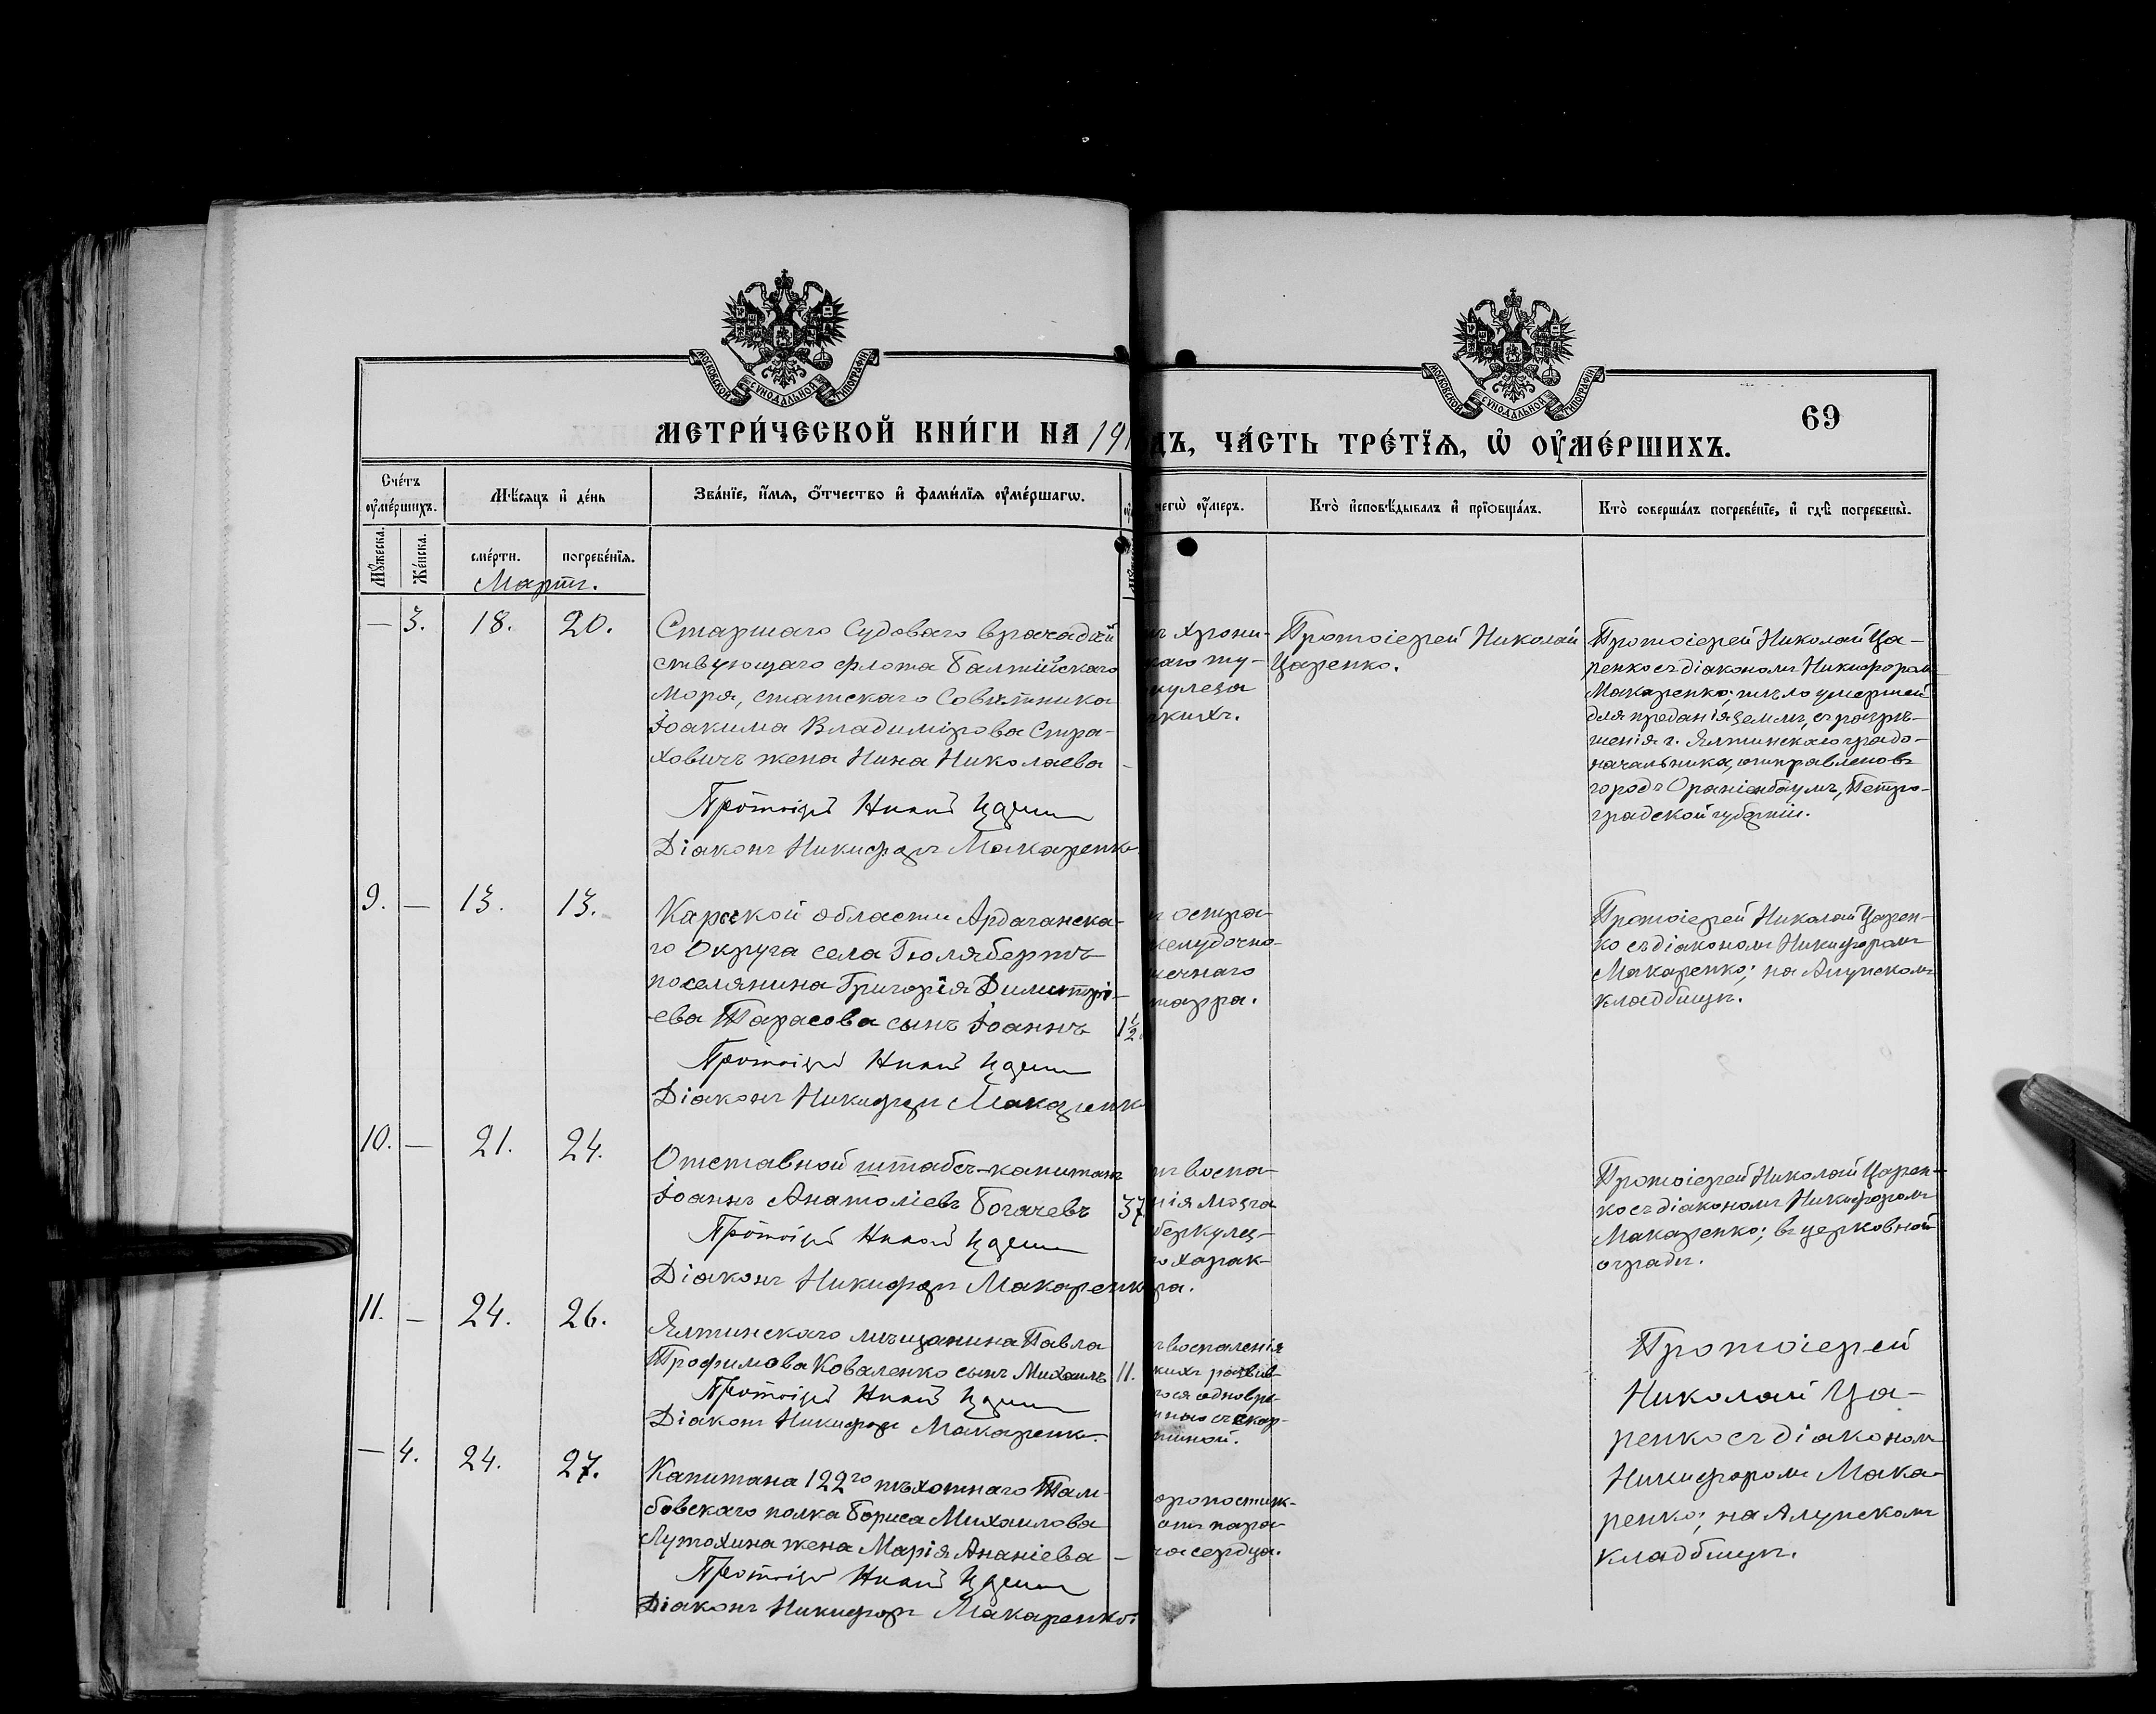 МОСКОВСКОЙ СѴНОДАЛЬНОЙ ТИПОГРАФІИ
МОСКОВСКОЙ СѴНОДАЛЬНОЙ ТИПОГРАФІИ
69
МЕТРИ́ЧЕСКОЙ КНИ́ГИ НА 191
ДЪ, ЧА́СТЬ ТРЕ́ТЇѦ, Ѡ҆ ОУ҆МЕ́РШИХЪ.
Сче́тъ оу҆ме́ршихъ.
Мѣ́сяцъ и҆ де́нь
Зва́нїе, и҆́мѧ, ѻ҆́тчество и҆ фами́лїѧ оу҆ме́ршагѡ.
чегѡ̀ оу҆́меръ.
Кто̀ и҆сповѣ́дывалъ и҆ прїѻбща́лъ.
Кто̀ соверша́лъ погребе́нїе, и҆ гдѣ̀ погребены̀.
Мꙋ́жеска.
Же́нска.
сме́рти.
погребе́нїѧ.
Мартъ.
— 3. 18. 20.
Старшаго Судоваго врача дѣй
ствующаго флота Балтійскаго
моря, статскаго Совѣтника
Іоакима Владимірова Стра-
ховичъ жена Нина Николаева -
Протоіерей Никол Царенко
Діаконъ Никифоръ Макаренко.
ъ хрони-
каго ту-
кулеза
кихъ.
Протоіерей Николай
Царенко.
Протоіерей Николай Ца-
ренко съ діакономъ Никифоромъ
Макаренко; тѣло умершей
для преданія землѣ, съ разрѣ-
шенія г. Ялтинскаго градо-
начальника, отправлено въ
городъ Ораніенбаумъ, Петро-
градской губерніи.
9. — 13. 13.
Карской области Ардаганска-
го Округа села Гюляберть
поселянина Григорія Димитрі-
ева Тарасова сынъ Іоаннъ 1½
Протоіерей Никол Царенко
Діаконъ Никифоръ Макаренко
ъ остра-
желудочно-
шечнаго
тарра.
Протоіерей Николай Царен-
ко съ діакономъ Никифоромъ
Макаренко; на Алупскомъ
кладбищѣ.
10. — 21. 24.
Отставной штабсъ-капитанъ
Іоаннъ Анатоліевъ Богачевъ 37
Протоіерей Никол Царенко
Діаконъ Никифоръ Макаренко
тъ воспа-
нія мозга
беркулез-
го харак-
ра.
Протоіерей Николай Царен-
ко съ діакономъ Никифоромъ
Макаренко; въ церковной
оградѣ.
11. — 24. 26.
Ялтинскаго мѣщанина Павла
Трофимова Коваленко сынъ Михаилъ 11.
Протоіерей Никол Царенко
Діаконъ Никифоръ Макаренко.
ъ воспаленія
кихъ развив-
гося одновре-
нно съ скар-
тиной.
— 4. 24. 27.
Капитана 122го пѣхотнаго Там-
бовскаго полка Бориса Михаилова
Лутохина жена Марія Ананіева -
Протоіерей Никол Царенко
Діаконъ Никифоръ Макаренко.
оропостиж-
отъ пара-
ча сердца.
Протоіерей
Николай Ца-
ренко съ діакономъ
Никифоромъ Мака-
ренко; на Алупскомъ
кладбищѣ.